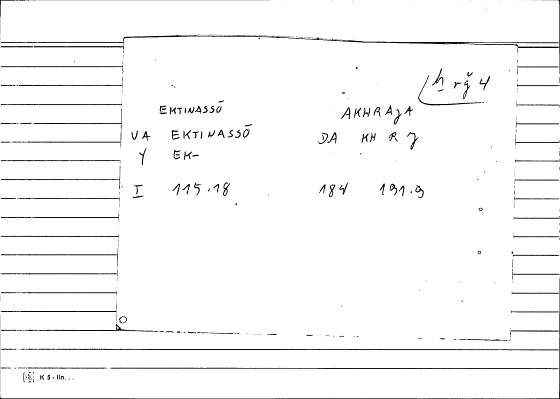 h rğ 4
EKTINASSŌ AKHRAJA
VA EKTINASSŌ DA KH R J
Y EK-
I 115.18 184 191.9
K 5 - IIn...